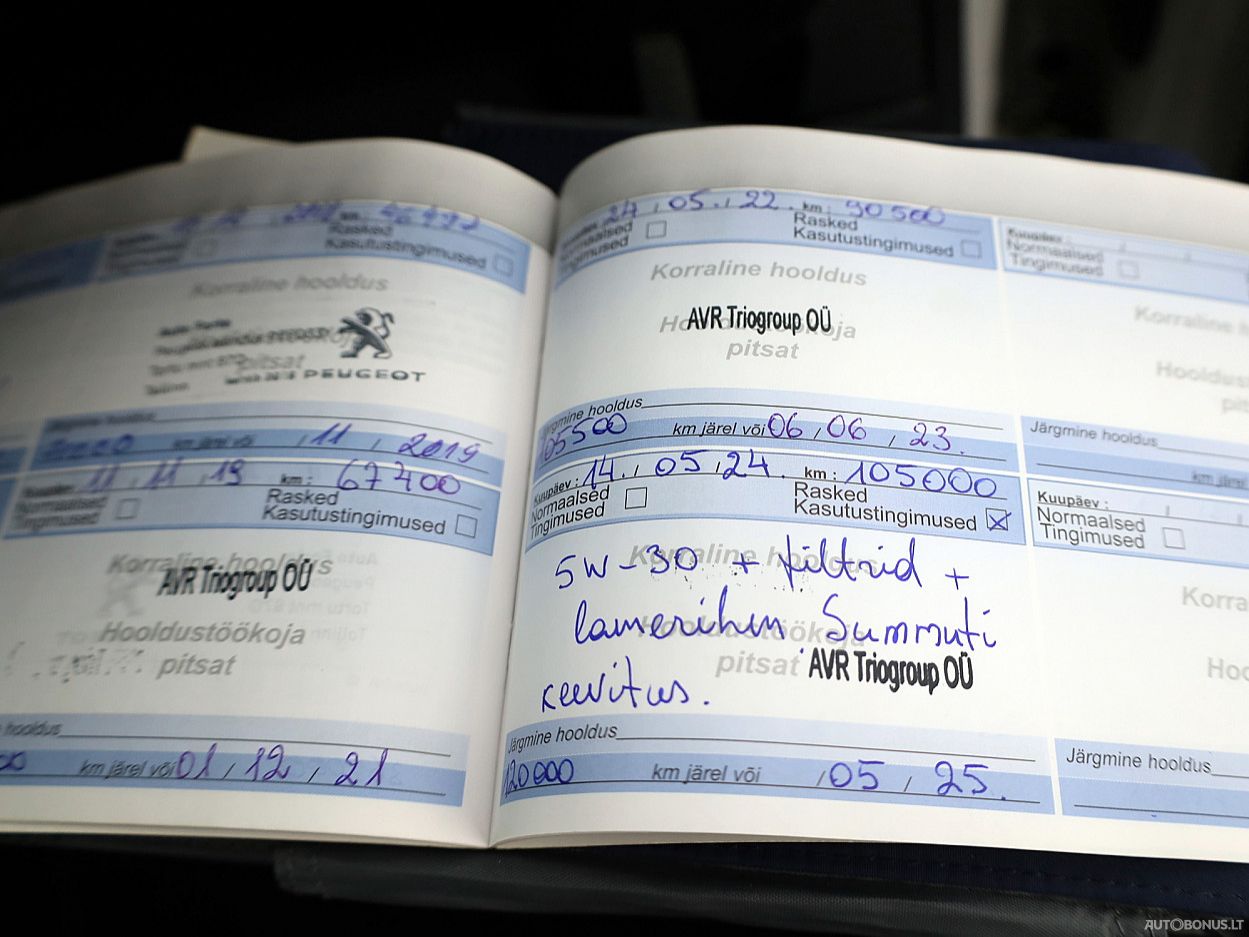 Rasked
Kasutustingimused
Korraline hooldus
pitsat
PEUGEOT
Järgmine hooldus
km järel või , 11 , 2019
11 , 11 , 19 km : 67400
Normaalsed
Tingimused
Rasked
Kasutustingimused
Korraline hooldus
AVR Triogroup OÜ
Hooldustöökoja
pitsat
hooldus
km järel või 01 , 12 , 21
24 , 05 , 22 . km : 90500
Normaalsed
Tingimused
Rasked
Kasutustingimused
Korraline hooldus
AVR Triogroup OÜ
Hooldustöökoja
pitsat
Järgmine hooldus
105500 km järel või 06 , 06 , 23.
Kuupäev : 14. , 05 , 24. km : 105000
Normaalsed
Tingimused
Rasked
Kasutustingimused
Korraline hooldus
5W-30 + filtrid +
Hooldustöökoja
Summuti
pitsat
AVR Triogroup OÜ
keevitus.
Järgmine hooldus
120000 km järel või , 05 , 25.
Kuupäev :
Normaalsed
Tingimused
Korraline hooldus
Järgmine hooldus
km järel
Kuupäev :
Normaalsed
Tingimused
Korra
Hoo
Järgmine hooldus
AUTOBONUS.LT